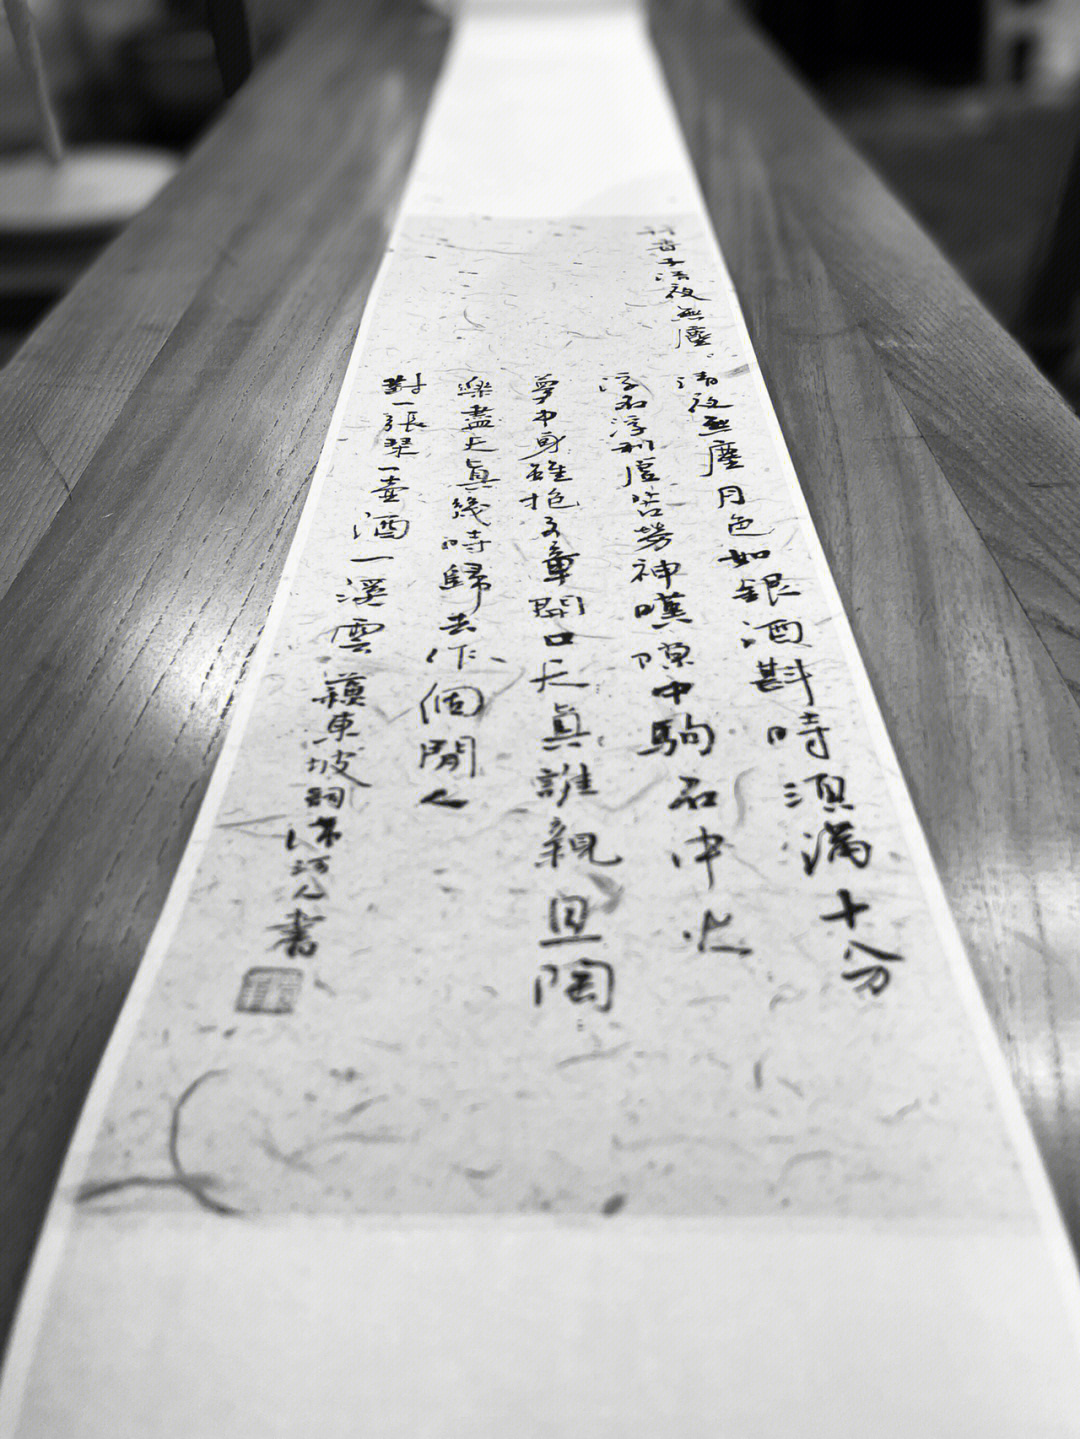 行香子清夜無塵
清夜無塵月色如銀酒斟時須滿十分
浮名浮利虛苦勞神嘆隙中駒石中火
夢中身雖抱文章開口天真誰親且陶〻
樂盡天真幾時歸去作個閒人
對一張琴一壺酒一溪雲 蘇東坡詞 河人書